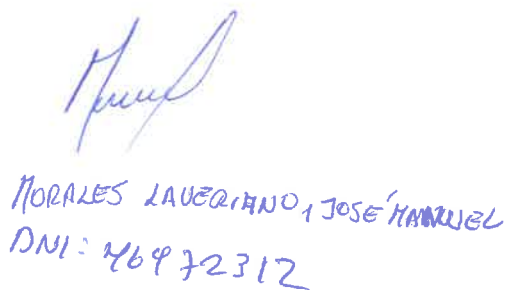 MORALES LAVERIANO, JOSÉ MANUEL
DNI: 46972312